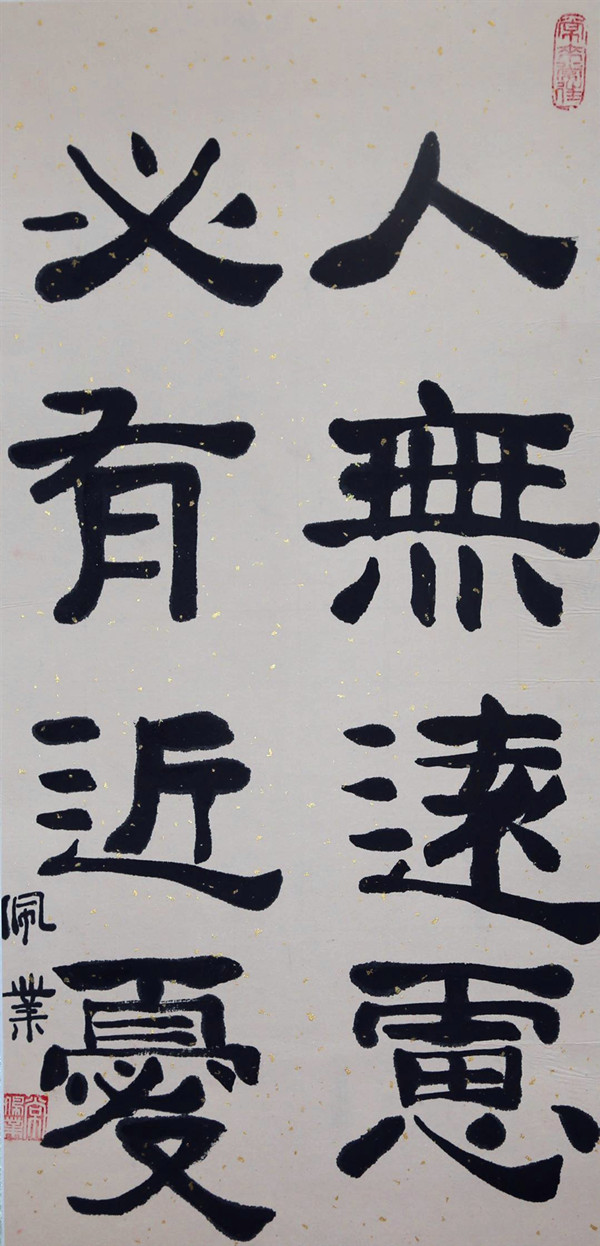 人無遠慮
必有近憂
佩業